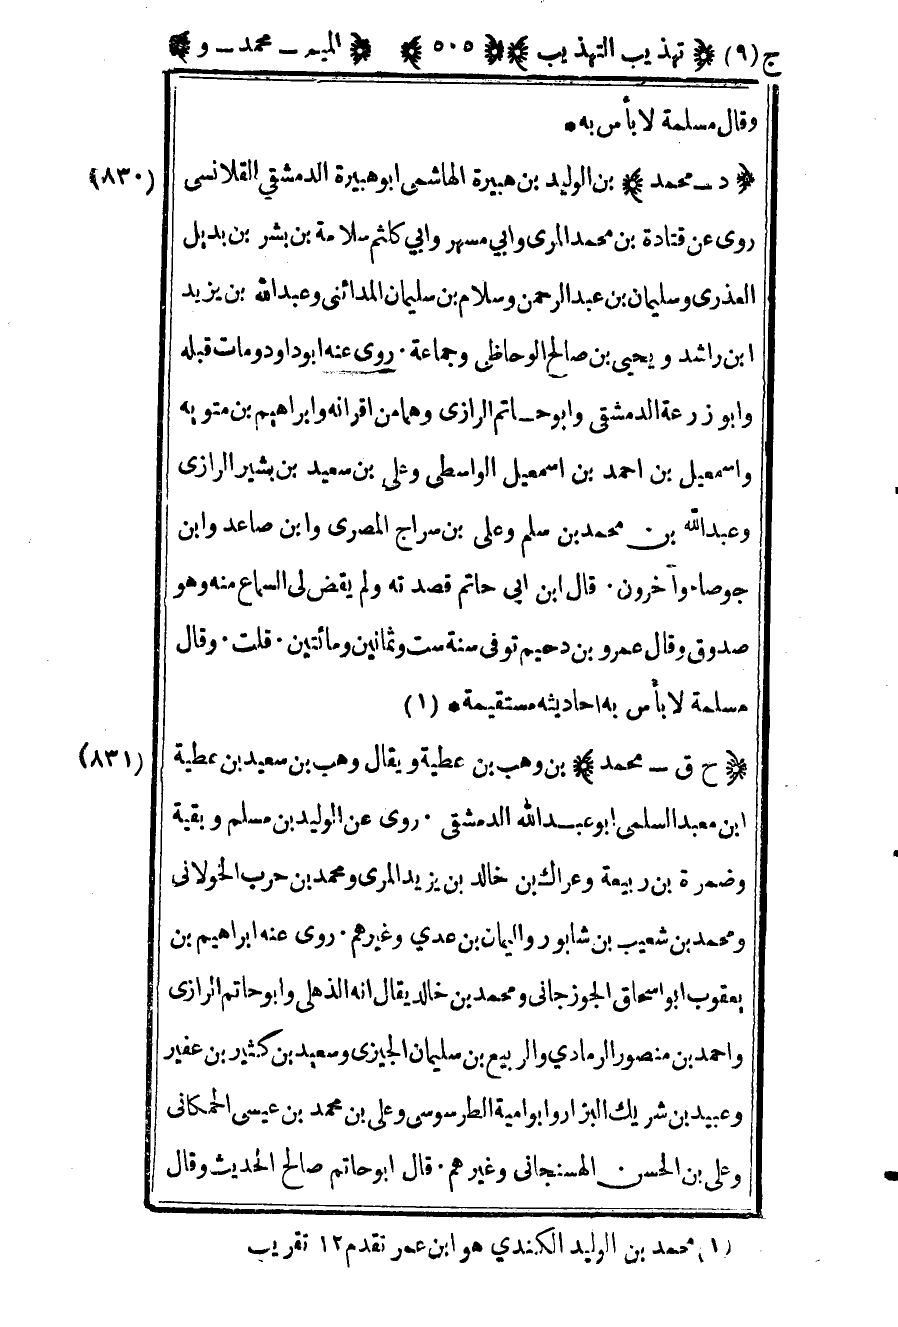 ج (٩) ﴿ تهذيب التهذيب ﴾ ﴿ ٥٠٥ ﴾ ﴿ الميم ــ محمد ــ و ﴾
وقال مسلمة لا بأس به •
﴿ د ــ محمد ﴾ بن الوليد بن هبيرة الهاشمى ابو هبيرة الدمشقي القلانسى (٨٣٠)
روى عن قتادة بن محمد المرى وابي مسهر وابي كلثم سلامة بن بشر بن بديل
العذرى وسليمان بن عبد الرحمن وسلام بن سليمان المدائنى وعبد الله بن يزيد
ابن راشد و يحيى بن صالح الوحاظى وجماعة . روى عنه ابوداود ومات قبله
وابو زرعة الدمشقي وابو حاتم الرازى وهما من اقرانه وابراهيم بن متويه
واسمعيل بن احمد بن اسمعيل الواسطى وعلى بن سعيد بن بشير الرازى
وعبد الله بن محمد بن سلم وعلى بن سراج المصرى وابن صاعد وابن
جوصاء وآخرون . قال ابن ابي حاتم قصدته ولم يقض لى السماع منه وهو
صدوق وقال عمرو بن دحيم توفى سنة ست وثمانين ومائتين . قلت . وقال
مسلمة لا بأس به احاديثه مستقيمة • (١)
﴿ خ ق ــ محمد ﴾ بن وهب بن عطية ويقال وهب بن سعيد بن عطية (٨٣١)
ابن معبد السلمى ابو عبد الله الدمشقى . روى عن الوليد بن مسلم و بقية
وضمرة بن ربيعة وعراك بن خالد بن يزيد المرى ومحمد بن حرب الخولانى
ومحمد بن شعيب بن شابور واليمان بن عدي وغيرهم . روى عنه ابراهيم بن
يعقوب ابو اسحاق الجوزجانى ومحمد بن خالد يقال انه الذهلى وابو حاتم الرازى
واحمد بن منصور الرمادي والربيع بن سليمان الجيزى وسعيد بن كثير بن عفير
وعبيد بن شريك البزار وابو امية الطرسوسى وعلى بن محمد بن عيسى الحكانى
وعلى بن الحسن الهسنجانى وغيرهم . قال ابو حاتم صالح الحديث وقال
(١) محمد بن الوليد الكندي هو ابن عمر تقدم ١٢ تقريب